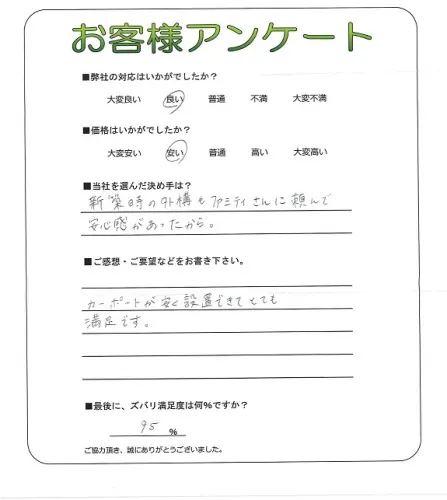 お客様アンケート
■弊社の対応はいかがでしたか？
大変良い 良い 普通 不満 大変不満
■価格はいかがでしたか？
大変安い 安い 普通 高い 大変高い
■当社を選んだ決め手は？
新築時の外構もファミティさんに頼んで
安心感があったから。
■ご感想・ご要望などをお書き下さい。
カーポートが安く設置できてとても
満足です。
■最後に、ズバリ満足度は何%ですか？
95 %
ご協力頂き、誠にありがとうございました。